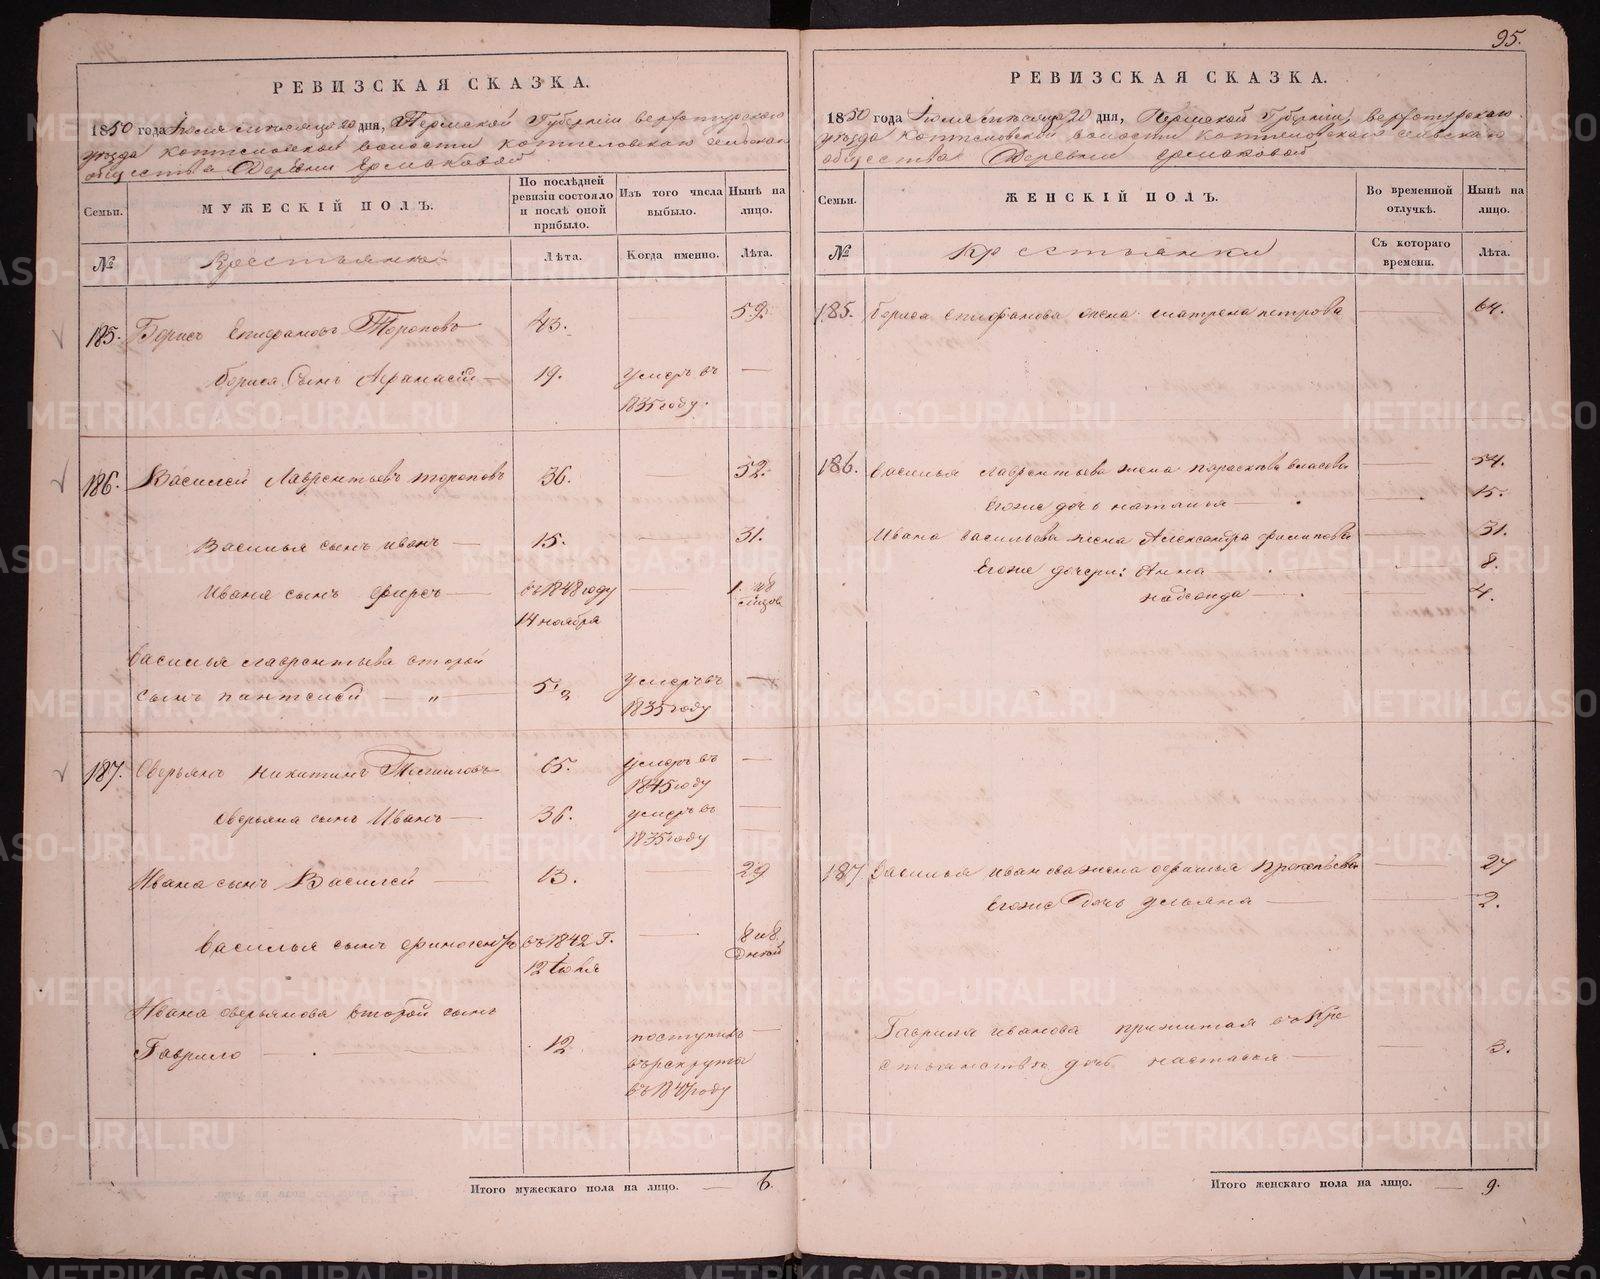 95.
РЕВИЗСКАЯ СКАЗКА.
1850 года Июля месяца 20 дня, Пермской Губернiи верхотурскаго
уезда коптеловской волости коптеловскаго сельскаго
общества Деревни Ермаковой
Семьи. МУЖЕСКІЙ ПОЛЪ. По послѣдней ревизіи состояло и послѣ оной прибыло. Изъ того числа выбыло. Нынѣ на лицо.
№ Крестьяне Лѣта. Когда именно. Лѣта.
185. Борисъ Епифановъ Тороповъ 43. 59.
Бориса Сынъ Афанасiй 19. умеръ въ —
1835 году.
186. Василей Лаврентьевъ тороповъ 36. — 52.
Василья сынъ иванъ — 15. — 31.
Ивана сынъ фирсъ — въ 1848 году — 1. и 8
14 ноября
Василья лаврентьева второй
сынъ пантелей — „ 5 1/2 умеръ въ —
1835 году
187. Оверьянъ никитинъ 65. умеръ въ —
1845 году
Оверьяна сынъ Иванъ — 36. умеръ въ —
1835 году —
Ивана сынъ Василей — 13. — 29
Василья сынъ финогенъ въ 1842 г. — 8 и 8
12 Іюля дней
Ивана оверьянова второй сынъ
Гаврило — 12 поступилъ —
въ рекруты
въ 1847 году
Итого мужескаго пола на лицо. — 6.
РЕВИЗСКАЯ СКАЗКА.
1850 года Июля месяца 20 дня, Пермской Губернiи верхотурскаго
уезда коптеловской волости коптеловскаго сельскаго
общества Деревни Ермаковой
Семьи. ЖЕНСКІЙ ПОЛЪ. Во временной отлучкѣ. Нынѣ на лицо.
№ Крестьянки Съ котораго времени. Лѣта.
185. Бориса Епифанова жена матрена петрова — 64.
186. Василья лаврентьева жена параскева власова — 54.
Егоже дочь наталья — 15.
Ивана Васильева жена Александра филипова — 31.
Егоже дочери: Анна — 8.
— 4.
187 Василья иванова жена Прокопьева — 27
Егоже Дочь ульяна — 2.
Гаврила иванова прижитая въ кре
стьянстве дочь настасья — 3.
Итого женскаго пола на лицо. — 9.
METRIKI.GASO-URAL.RU